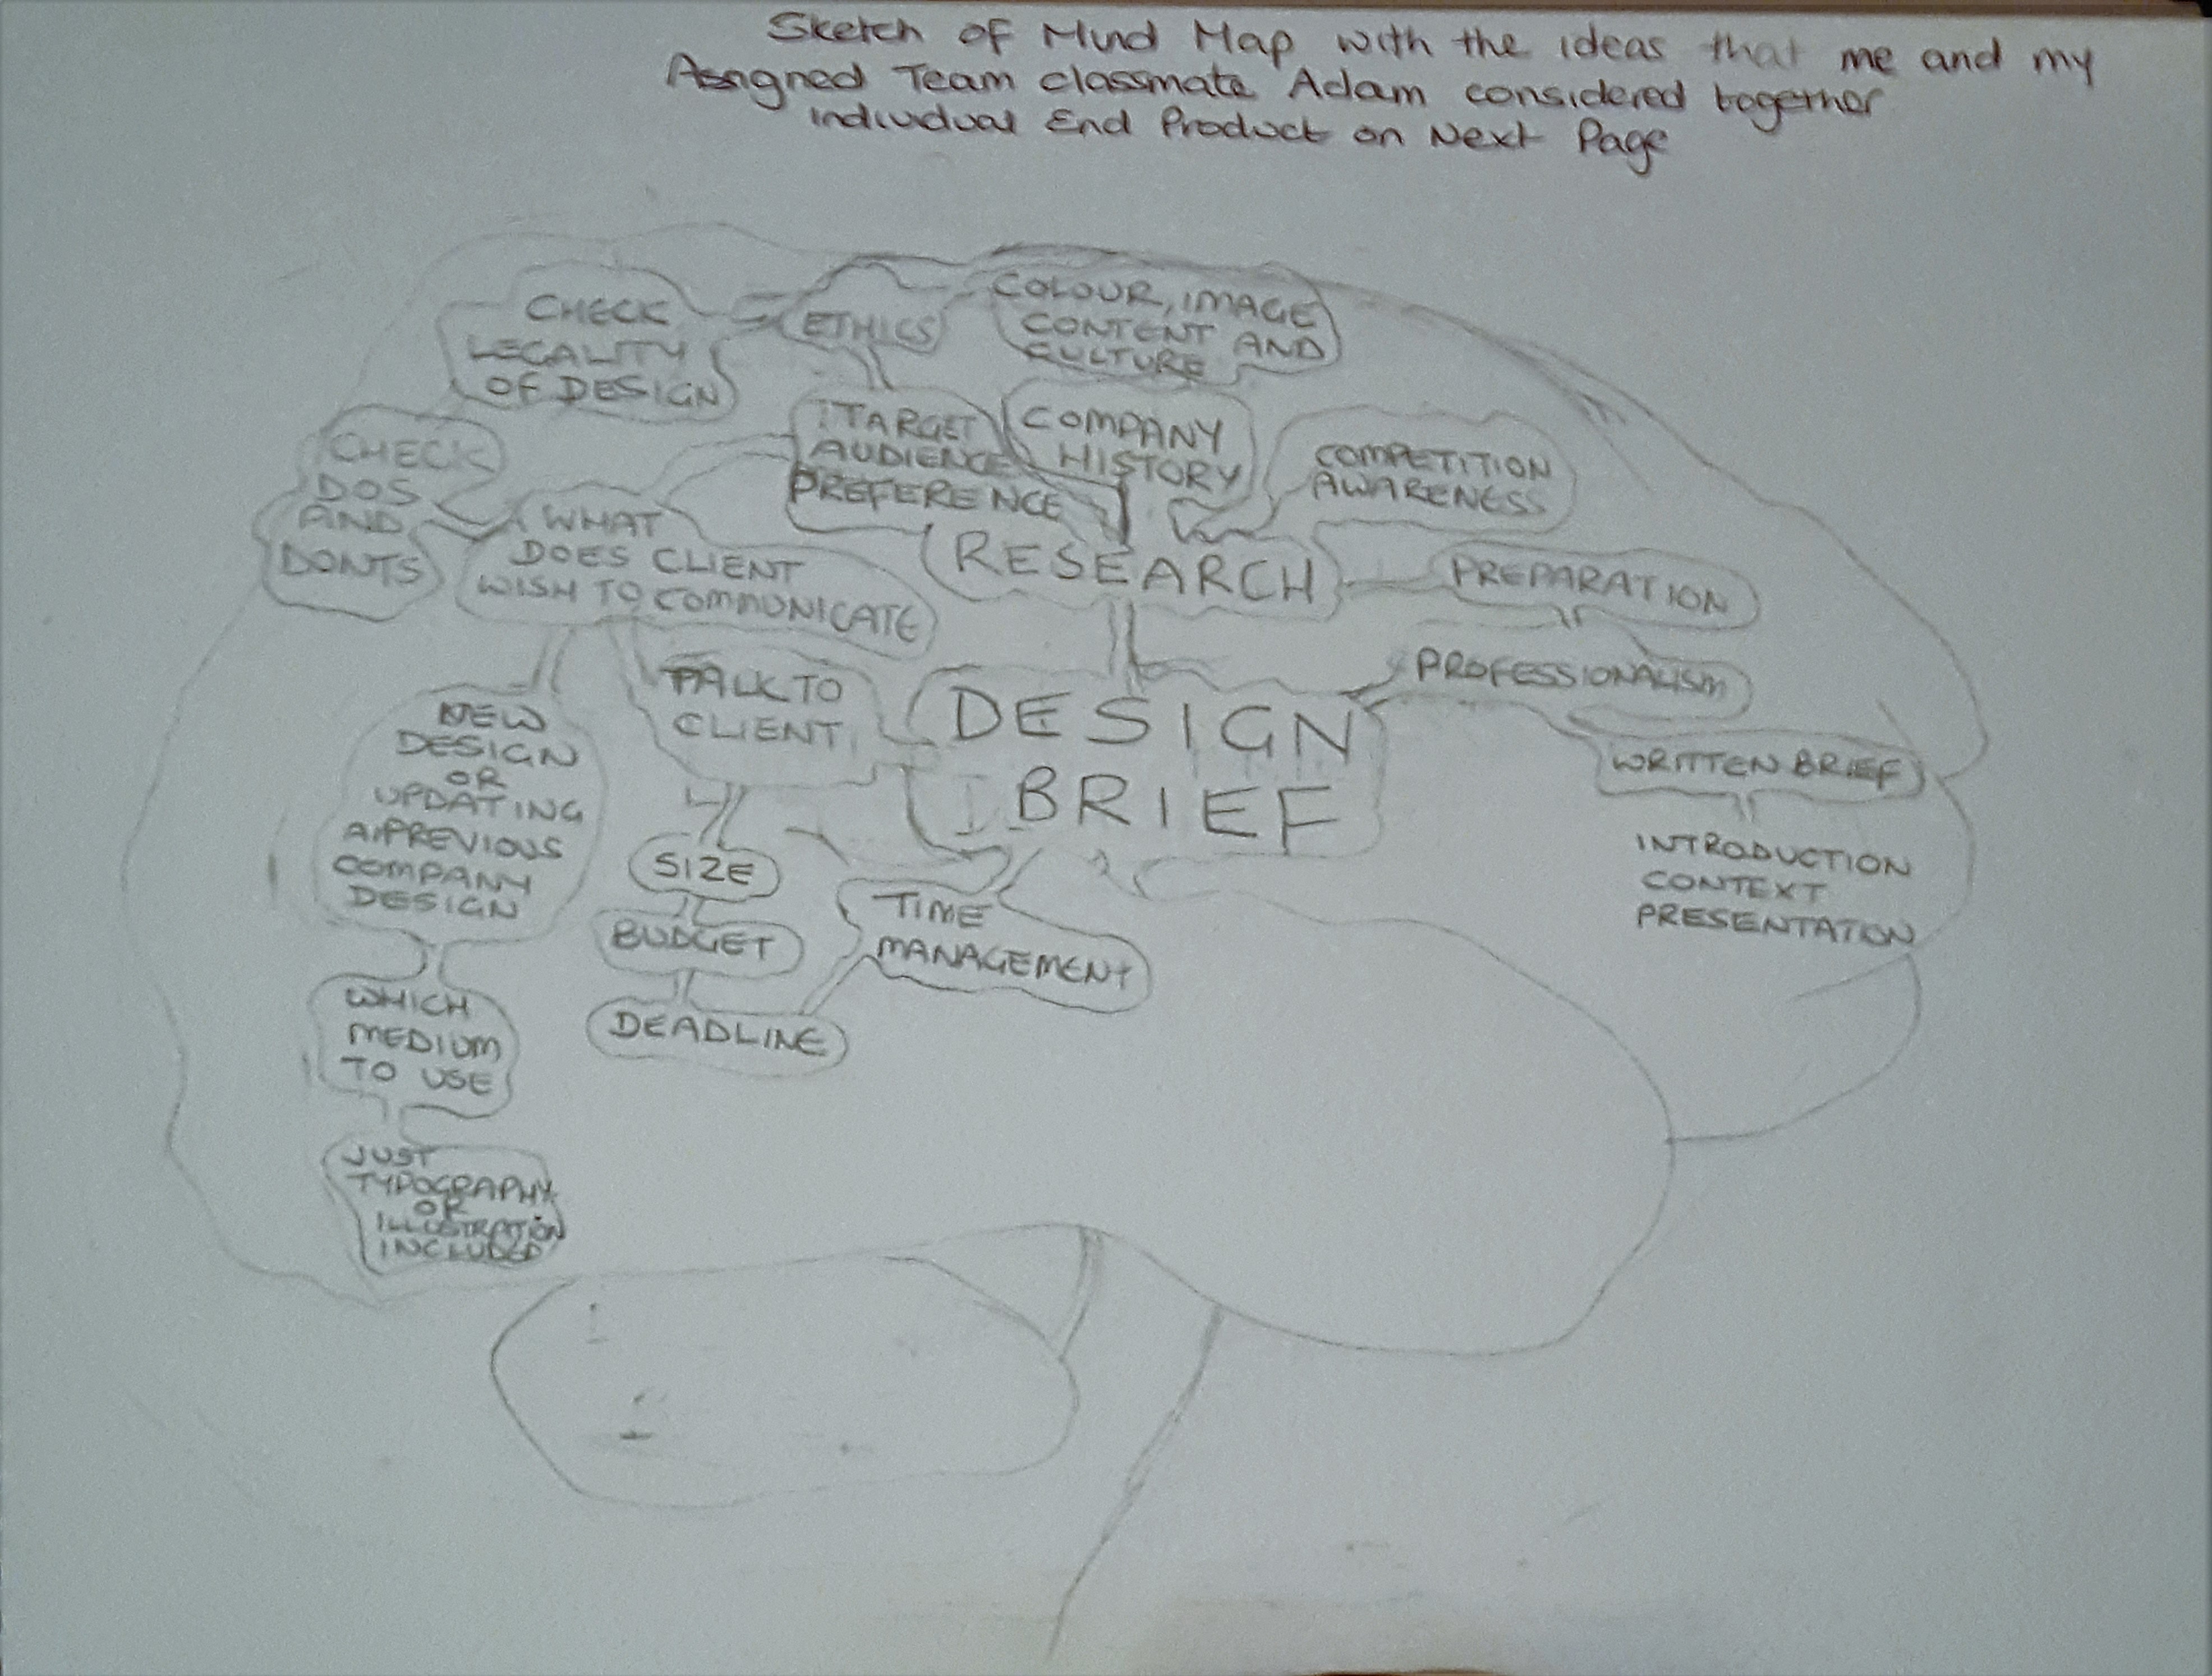 Sketch of Mind Map with the ideas that me and my
Assigned Team classmate Adam considered together
Individual End Product on Next Page
CHECK
LEGALITY
OF DESIGN
ETHICS
COLOUR, IMAGE
CONTENT AND
CULTURE
CHECK
DOS
AND
DONTS
WHAT
DOES CLIENT
WISH TO COMMUNICATE
TARGET
AUDIENCE
PREFERENCE
COMPANY
HISTORY
COMPETITION
AWARENESS
RESEARCH
PREPARATION
PROFESSIONALISM
WRITTEN BRIEF
INTRODUCTION
CONTEXT
PRESENTATION
DESIGN
BRIEF
TALK TO
CLIENT
NEW
DESIGN
OR
UPDATING
A PREVIOUS
COMPANY
DESIGN
SIZE
BUDGET
DEADLINE
TIME
MANAGEMENT
WHICH
MEDIUM
TO USE
JUST
TYPOGRAPHY
OR
ILLUSTRATION
INCLUDED